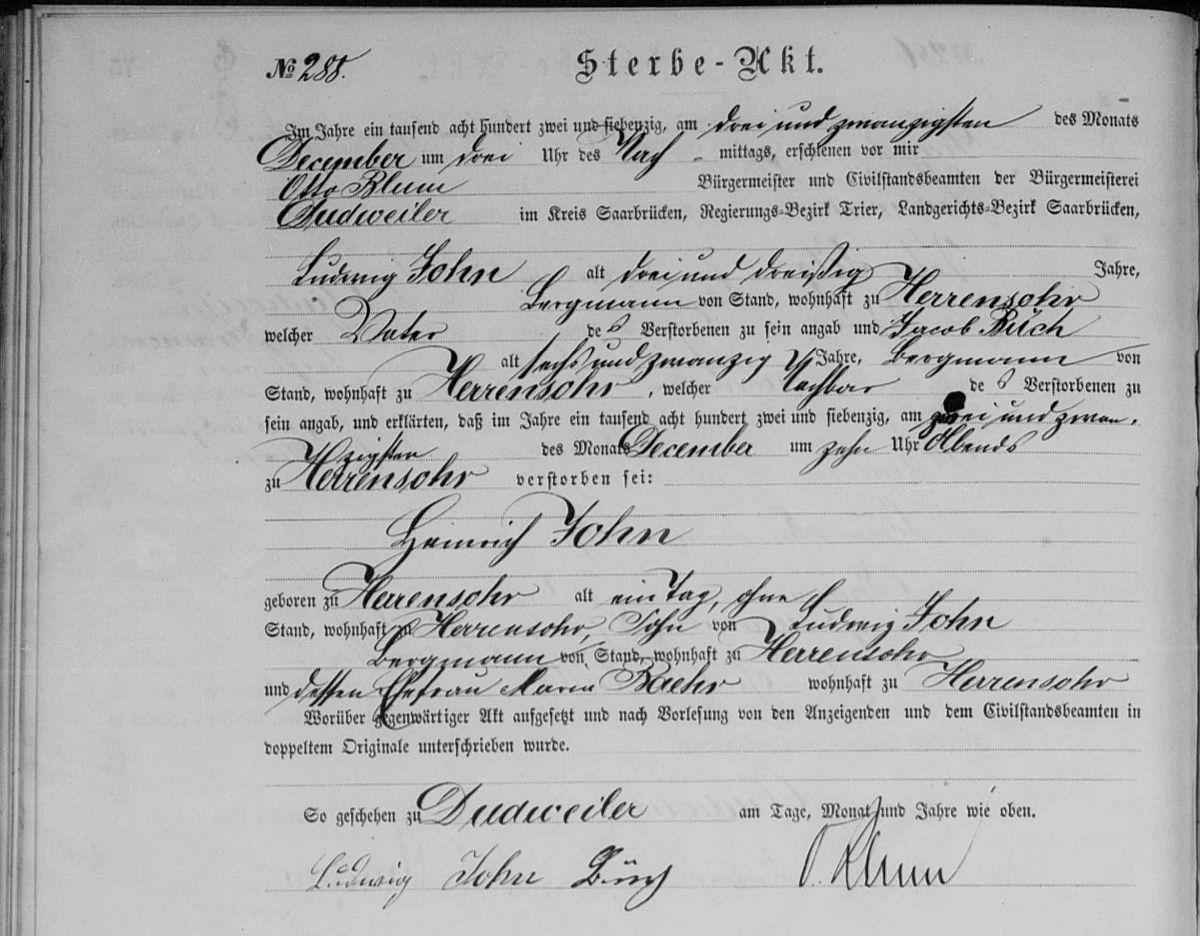 № 288. Sterbe-Akt.
Im Jahre ein tausend acht hundert zwei und siebenzig, am drei und zwanzigsten des Monats
December um drei Uhr des Nach-mittags, erschienen vor mir
Otto Blum Bürgermeister und Civilstandsbeamten der Bürgermeisterei
Dudweiler im Kreis Saarbrücken, Regierungs-Bezirk Trier, Landgerichts-Bezirk Saarbrücken,
Ludwig John alt drei und dreißig Jahre,
Bergmann von Stand, wohnhaft zu Herrensohr
welcher Vater des Verstorbenen zu sein angab und Jacob Büch
alt sechs und zwanzig Jahre, Bergmann von
Stand, wohnhaft zu Herrensohr, welcher Nachbar des Verstorbenen zu
sein angab, und erklärten, daß im Jahre ein tausend acht hundert zwei und siebenzig, am zwei und zwan-
zigsten des Monats December um zehn Uhr Abends
zu Herrensohr verstorben sei:
Heinrich John
geboren zu Herrensohr alt ein Tag, ohne
Stand, wohnhaft zu Herrensohr, Sohn von Ludwig John
Bergmann von Stand, wohnhaft zu Herrensohr
und dessen Ehefrau Maria Baehr wohnhaft zu Herrensohr
Worüber gegenwärtiger Akt aufgesetzt und nach Vorlesung von den Anzeigenden und dem Civilstandsbeamten in
doppeltem Originale unterschrieben wurde.
So geschehen zu Dudweiler am Tage, Monat und Jahre wie oben.
Ludwig John Büch O. Blum